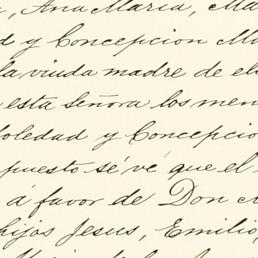 , Ana Maria, Ma
d y Concepcion M
la viuda madre de el
esta Señora los men
Soledad y Concepcio
puesto sé vé que el
á favor de Don
hijos Jesus, Emilio,